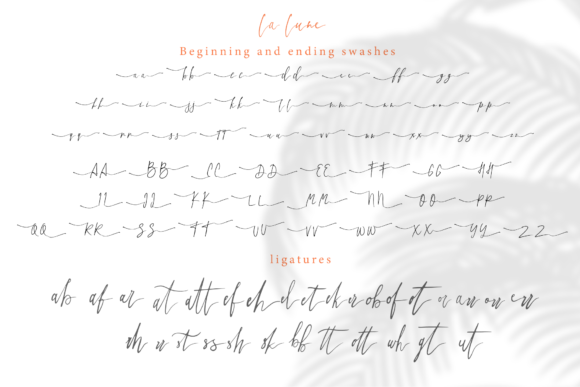 la lune
Beginning and ending swashes
aa bb cc dd ee ff gg
hh ii jj kk ll mm nn oo pp
qq rr ss tt uu vv ww xx yy zz
AA BB CC DD EE FF GG HH
II JJ KK LL MM NN OO PP
QQ RR SS TT UU VV WW XX YY ZZ
ligatures
ab af ar at att ef eh el et ek er ob of ot or an on en
th st ss sh sk bb tt ott wh gt ut